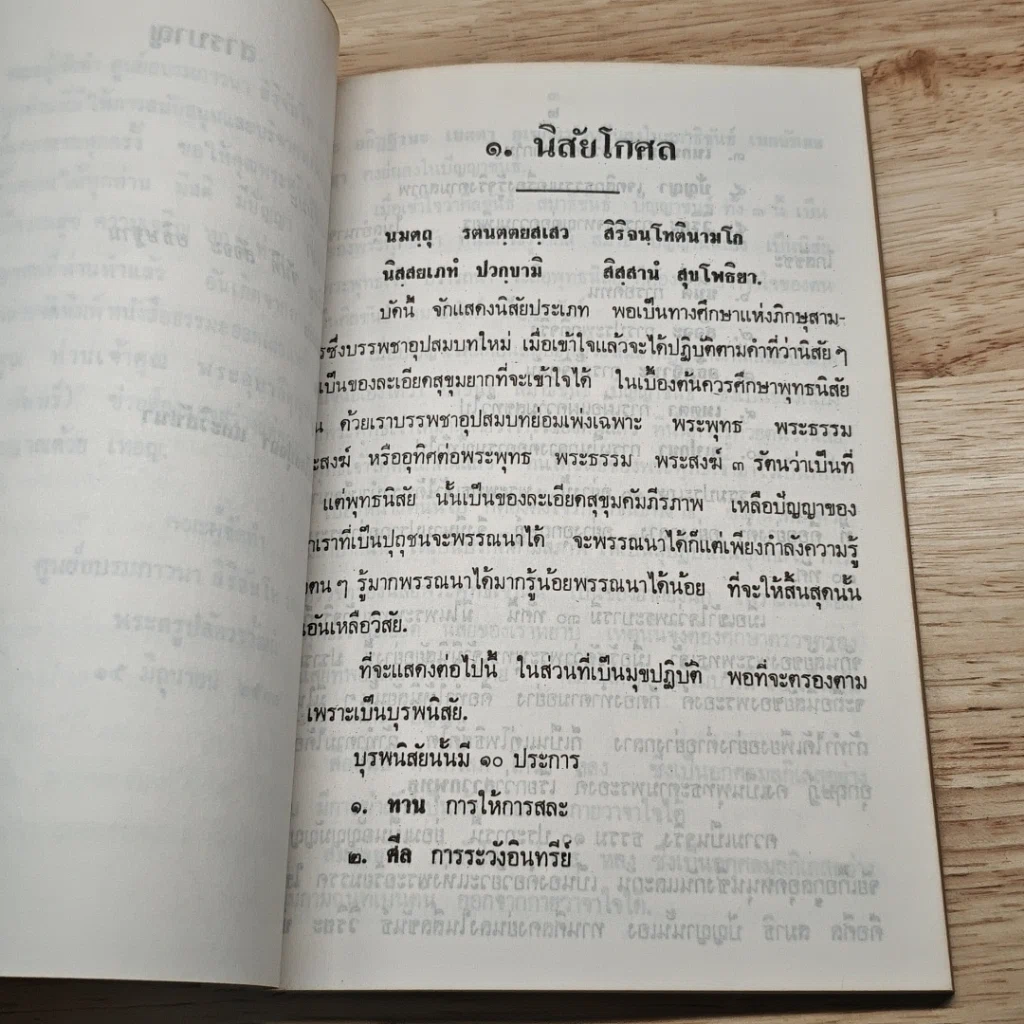 ๑. นิสัยโกศล
นมตฺถุ รตนตฺตยสฺเสว สิริจนฺโทตินามโก
นิสฺสยเภทํ ปวกฺขามิ สิสฺสานํ สุขโพธิยา.
บัดนี้ จักแสดงนิสัยประเภท พอเป็นทางศึกษาแห่งภิกษุสาม-
รซึ่งบรรพชาอุปสมบทใหม่ เมื่อเข้าใจแล้วจะได้ปฏิบัติตามคำที่ว่านิสัย ๆ
เป็นของละเอียดสุขุมยากที่จะเข้าใจได้ ในเบื้องต้นควรศึกษาพุทธนิสัย
น ด้วยเราบรรพชาอุปสมบทย่อมเพ่งเฉพาะ พระพุทธ พระธรรม
ะสงฆ์ หรืออุทิศต่อพระพุทธ พระธรรม พระสงฆ์ ๓ รัตนว่าเป็นที่
แต่พุทธนิสัย นั้นเป็นของละเอียดสุขุมคัมภีรภาพ เหลือปัญญาของ
าเราที่เป็นปุถุชนจะพรรณนาได้ จะพรรณนาได้ก็แต่เพียงกำลังความรู้
งตน ๆ รู้มากพรรณนาได้มากรู้น้อยพรรณนาได้น้อย ที่จะให้สิ้นสุดนั้น
อันเหลือวิสัย.
ที่จะแสดงต่อไปนี้ ในส่วนที่เป็นมุขปฏิบัติ พอที่จะตรองตาม
เพราะเป็นบุรพนิสัย.
บุรพนิสัยนั้นมี ๑๐ ประการ
๑. ทาน การให้การสละ
๒. ศีล การระวังอินทรีย์